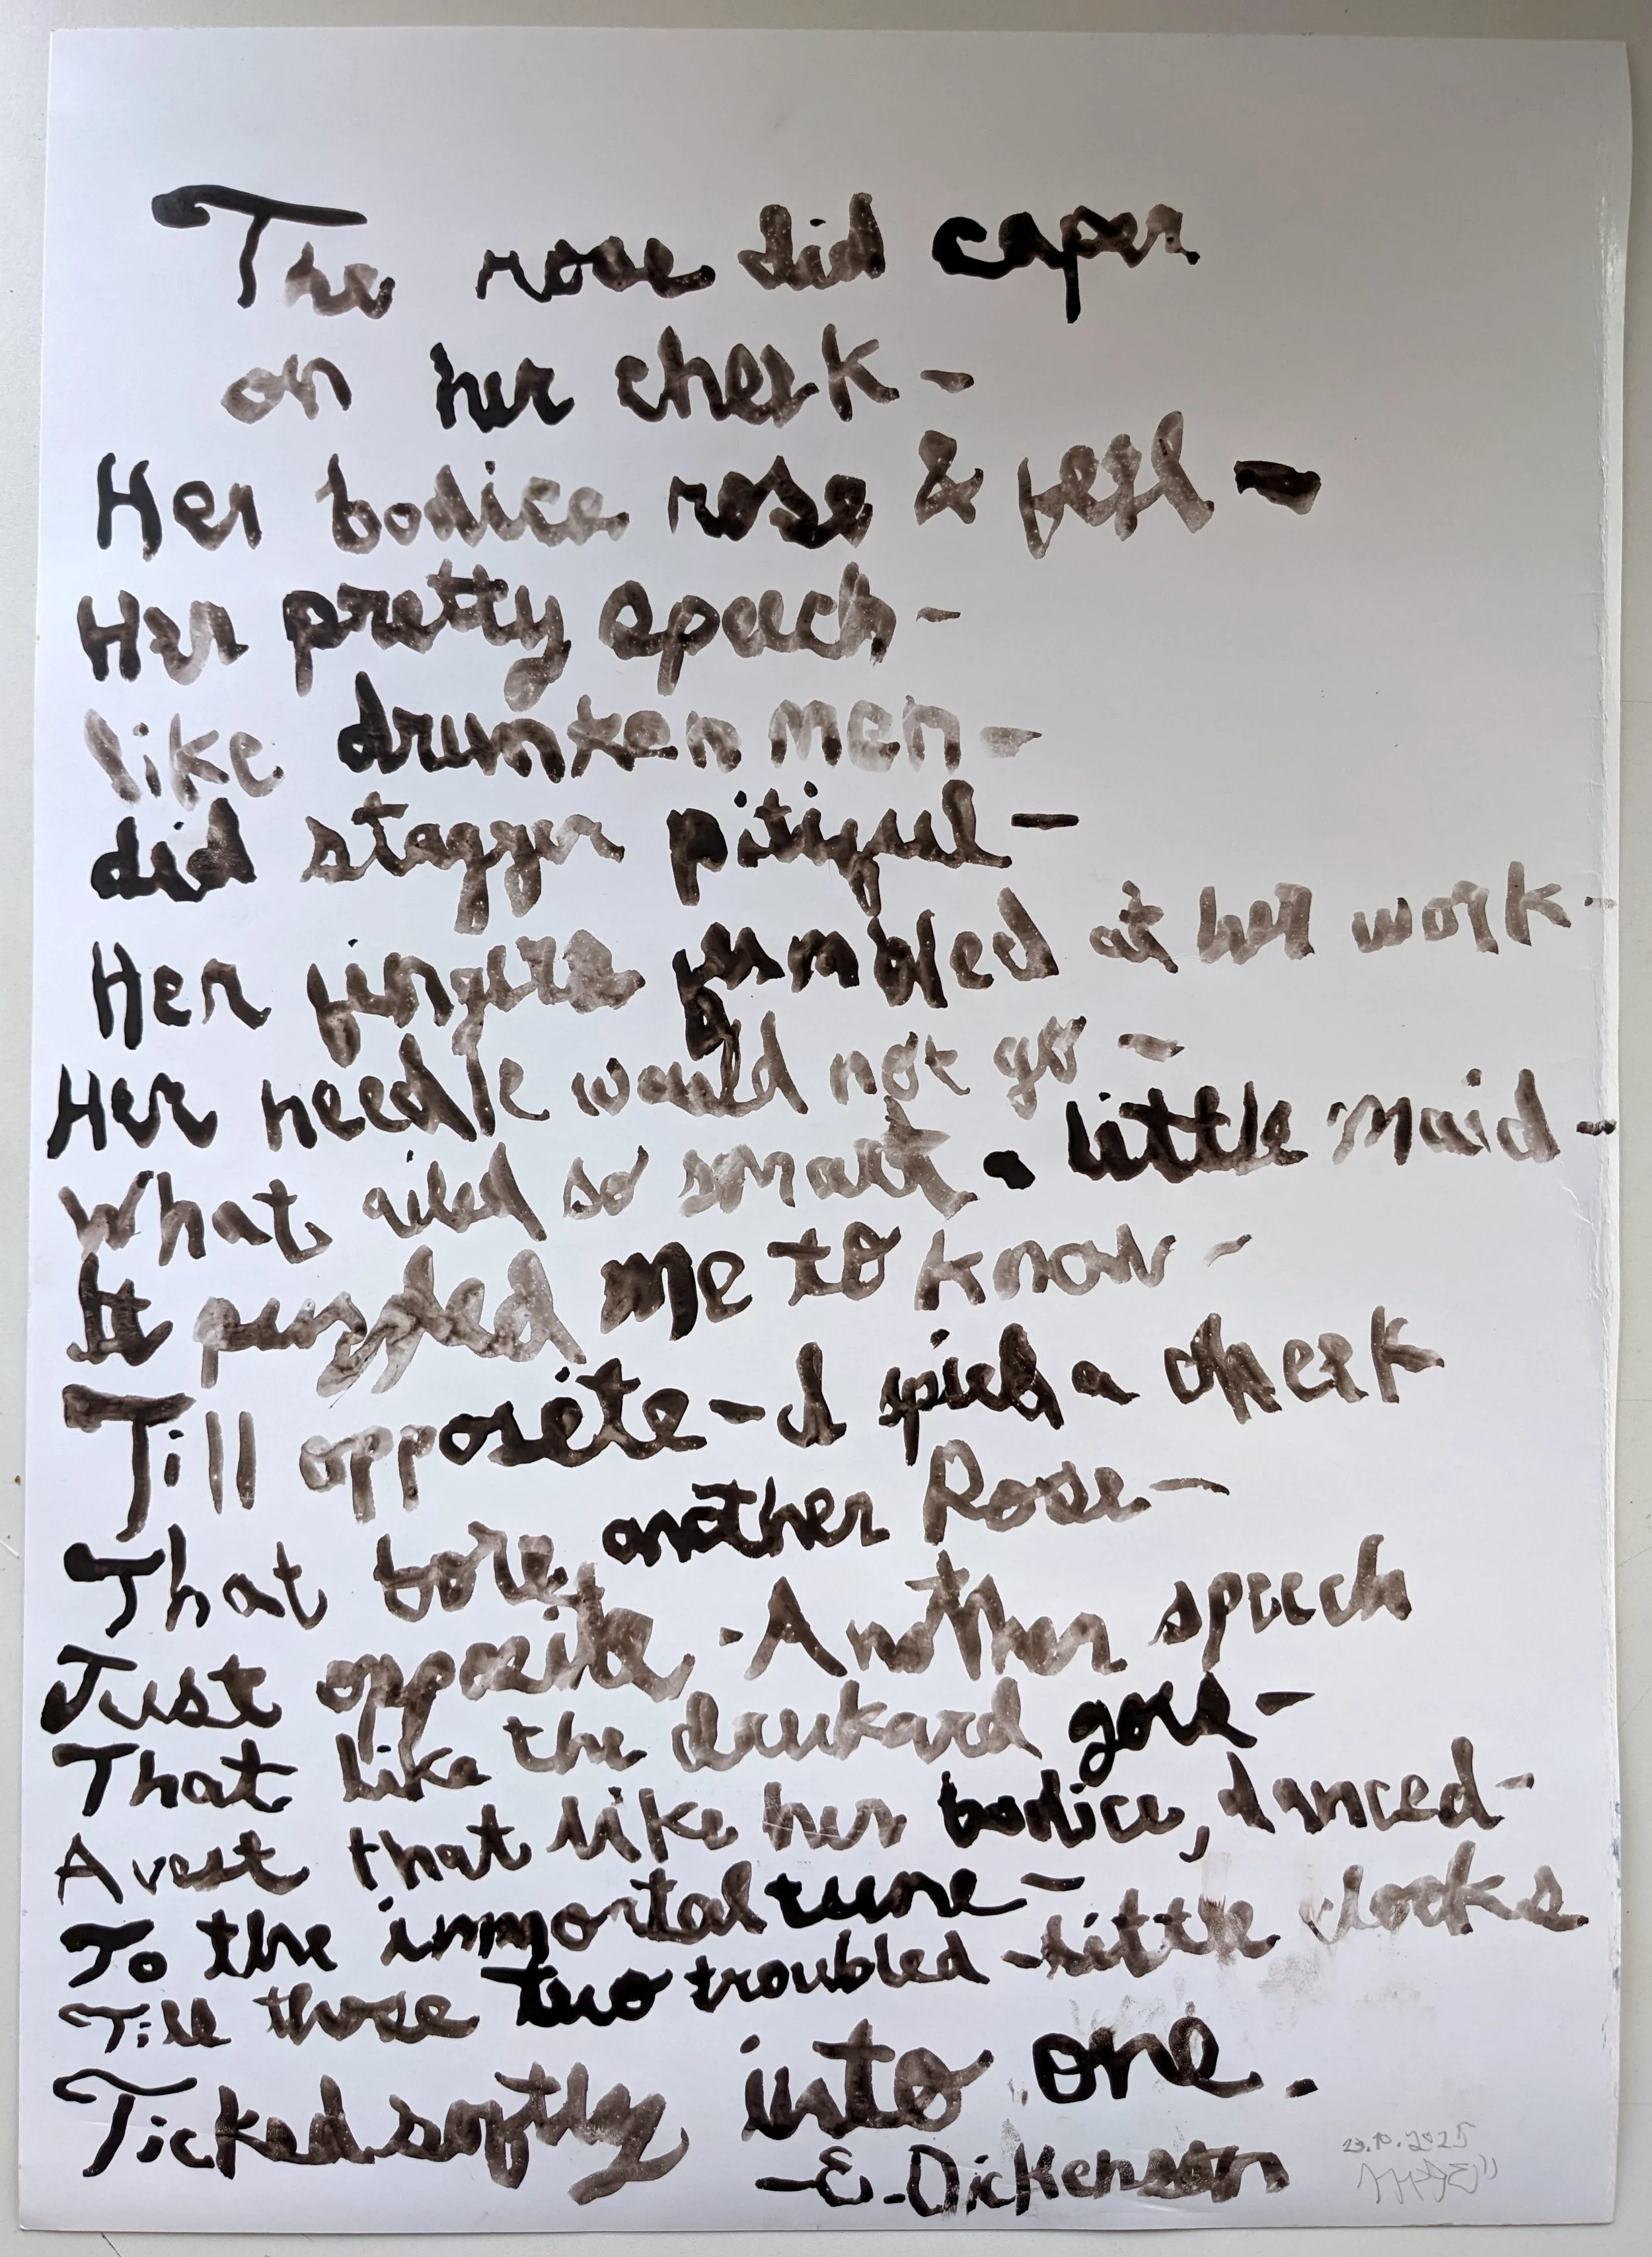 The rose did caper
on her cheek -
Her bodice rose & fell -
Her pretty speech -
like drunken men -
did stagger pitiful -
Her fingers fumbled at her work -
Her needle would not go -
What ailed so smart a little maid -
It puzzled me to know -
Till opposite - I spied a cheek
That bore another Rose -
Just opposite - Another speech
That like the drukard goes -
A vest that like her bodice, danced -
To the immortal tune -
Till those two troubled - little clocks
Ticked softly into one.
- E. Dickenson
23.10.2025